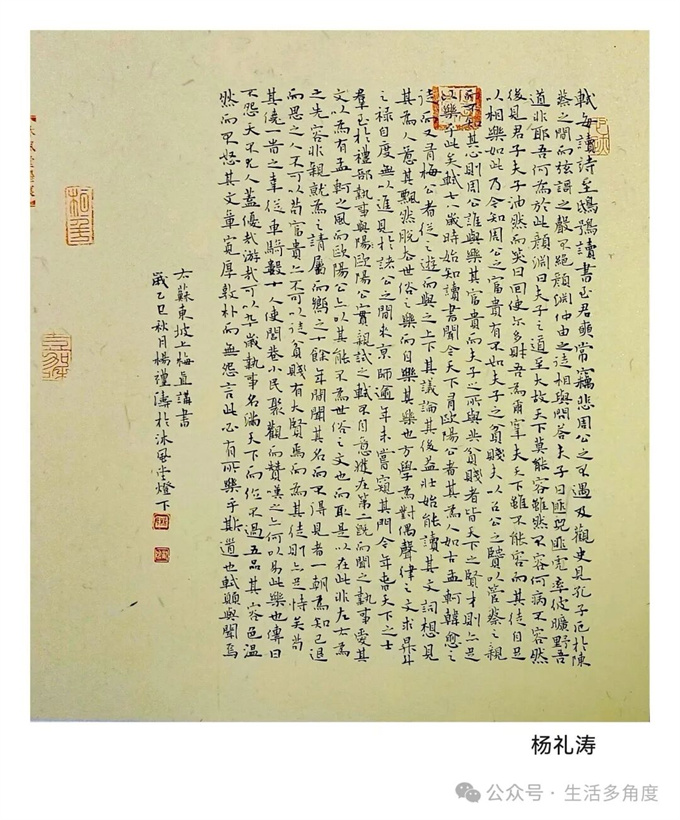 軾每讀詩至鴟鴞讀書至君奭常竊悲周公之不遇及觀史見孔子厄於陳
蔡之間而弦誦之聲不絕顏淵仲由之徒相與問答夫子曰匪兕匪虎率彼曠野吾
道非耶吾何為於此顏淵曰夫子之道至大故天下莫能容雖然不容何病不容然
後見君子夫子油然而笑曰回使尔多財吾為爾宰夫天下雖不能容而其徒自足
以相樂如此乃今知周公之富貴有不如夫子之貧賤夫以召公之賢以管蔡之親
而不知其心則周公誰與樂其富貴而夫子之所與共貧賤者皆天下之賢才則亦足
以樂乎此矣軾七八歲時始知讀書聞今天下有歐陽公者其為人如古孟軻韓愈之
徒而又有梅公者從之遊而與之上下其議論其後益壯始能讀其文詞想見
其為人意其飄然脫去世俗之樂而自樂其樂也方學為對偶聲律之文求昇斗
之祿自度無以進見於諸公之間來京師逾年未嘗窺其門今年春天下之士
羣至於禮部執事與陽歐陽公實親試之軾不自意獲在第二既而聞之執事愛其
文以為有孟軻之風而歐陽公亦以其能不為世俗之文也而取是以在此非左右為
之先容非親就為之請屬而嚮之十餘年間聞其名而不得見者一朝為知己退
而思之人不可以苟富貴亦不可以徒貧賤有大賢焉而為其徒則亦足恃矣苟
其僥一時之幸從車騎數十人使閭巷小民聚觀而贊嘆之亦何以易此樂也傳曰
不怨天不尤人蓋優哉游哉可以卒歲執事名滿天下而位不過五品其容色溫
然而不怒其文章寬厚敦朴而無怨言此必有所樂乎斯道也軾願與聞焉
右蘇東坡上梅直講書
歲乙巳秋月楊禮濤於沐風堂燈下
杨礼涛
公众号·生活多角度